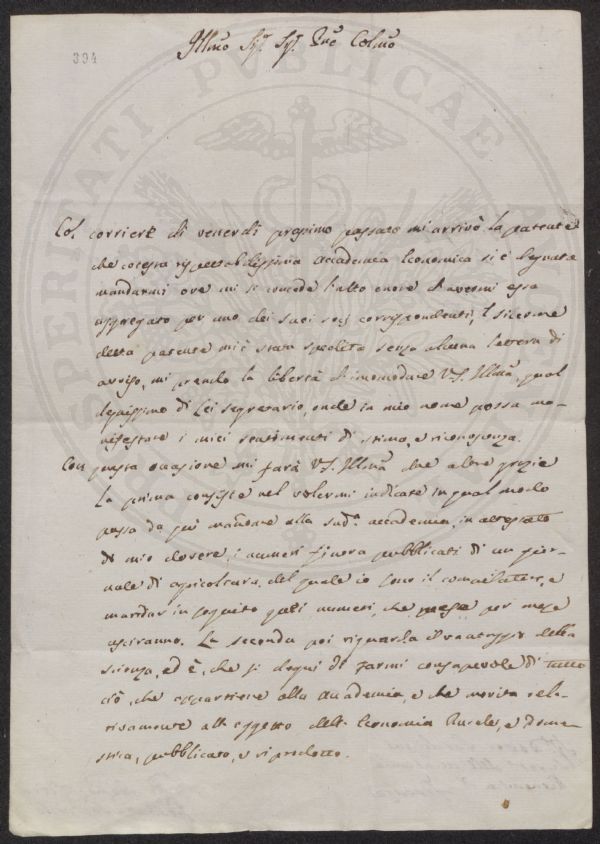 394
Illmo Sigr. Sigr. Prone Colmo
Col corriere di venerdi prossimo passato mi arrivò la patente
che cotesta rispettabilissima Accademia Economica si è degnata
mandarmi ove mi si concede l'alto onore d'avermi essa
aggregato per uno dei suoi socj corrispondenti; E siccome
detta patente mi è stata spedita senza alcuna lettera di
avviso, mi prendo la libertà d'incomodare V. S. Illma, qual
degnissimo di Lei segretario, onde in mio nome possa ma-
nifestare i miei sentimenti di stima, e riconoscenza.
Con questa occasione mi farà V. S. Illma due altre grazie
La prima consiste nel volermi indicare in qual modo
possa da quì mandare alla sudа accademia, in attestato
di mio dovere, i numeri finora pubblicati di un gior-
nale di agricoltura, del quale io sono il compilatore, e
mandar in seguito quei numeri, che mese per mese
usciranno. La seconda poi riguarda il vantaggio della
scienza, ed è, che si degni di farmi consapevole di tutto
ciò, che appartiene alla Accademia, e che merita rela-
tivamente all'oggetto dell'Economia Rurale, e Dome-
stica, pubblicato, e riprodotto.
PROSPERITATI PVBLICAE AVGENDAE